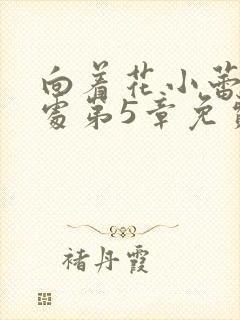 向着花小蕾
处第5章免
褚丹霞